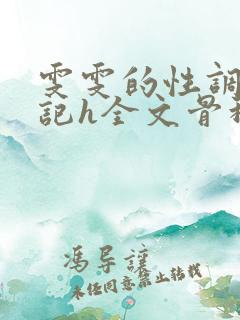 雯雯的性调
記h全文骨科
冯导謹
未经同意禁止转载